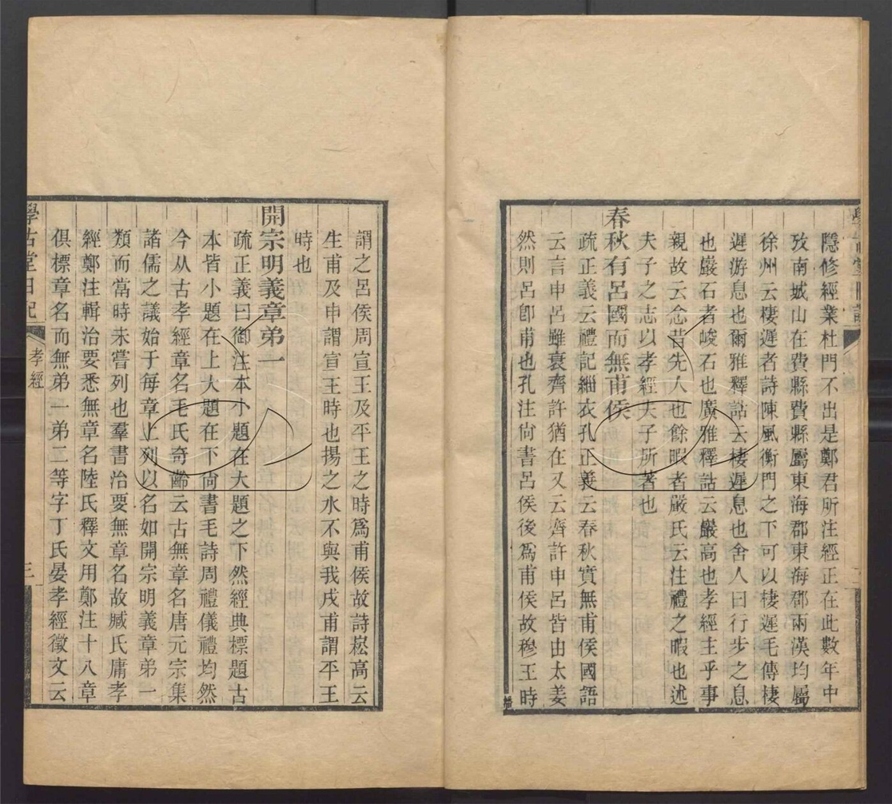 隱修經業杜門不出是鄭君所注經正在此數年中
攷南城山在費縣費縣屬東海郡東海郡兩漢均屬
徐州云棲遲者詩陳風衡門之下可以棲遲毛傳棲
遲游息也爾雅釋詁云棲遲息也舍人曰行步之息
也巖石者峻石也廣雅釋詁云巖高也孝經主乎事
親故云念昔先人也餘暇者嚴氏云注禮之暇也述
夫子之志以孝經夫子所著也
春秋有呂國而無甫侯
疏正義云禮記緇衣孔正義云春秋實無甫侯國語
云言申呂雖衰齊許猶在又云齊許申呂皆由太姜
然則呂卽甫也孔注尙書呂侯後爲甫侯故穆王時
謂之呂侯周宣王及平王之時爲甫侯故詩崧高云
生甫及申謂宣王時也揚之水不與我戍甫謂平王
時也
開宗明義章弟一
疏正義曰御注本小題在大題之下然經典標題古
本皆小題在上大題在下尙書毛詩周禮儀禮均然
今从古孝經章名毛氏奇齡云古無章名唐元宗集
諸儒之議始于每章上列以名如開宗明義章弟一
類而當時未嘗列也羣書治要無章名故臧氏庸孝
經鄭注輯治要悉無章名陸氏釋文用鄭注十八章
俱標章名而無弟一弟二等字丁氏晏孝經徵文云
學古堂日記
孝經
三